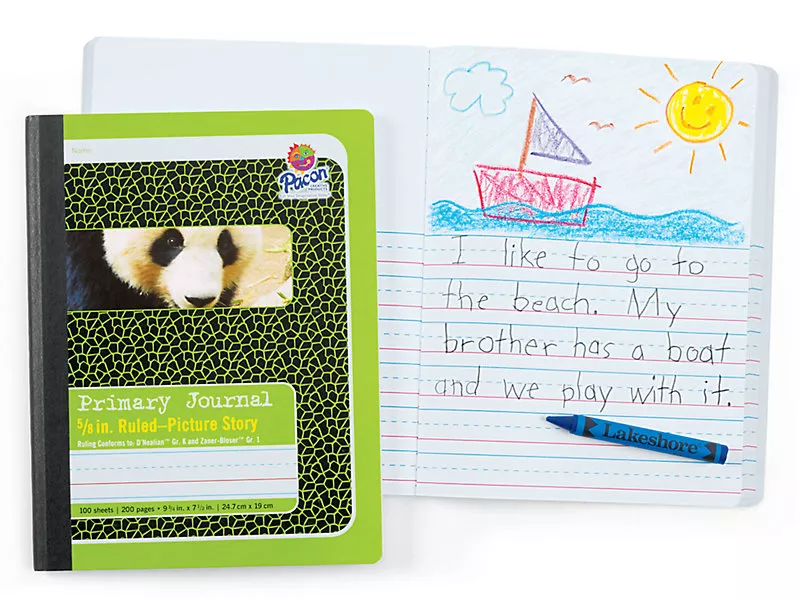 Name:
Pacon
CREATIVE PRODUCTS
Primary Journal
5/8 in. Ruled–Picture Story
Ruling Conforms to: D'Nealian™ Gr. K and Zaner-Bloser™ Gr. 1
100 sheets | 200 pages • 9 3/4 in. x 7 1/2 in. | 24.7 cm x 19 cm
I like to go to
the beach. My
brother has a boat
and we play with it.
Lakeshore